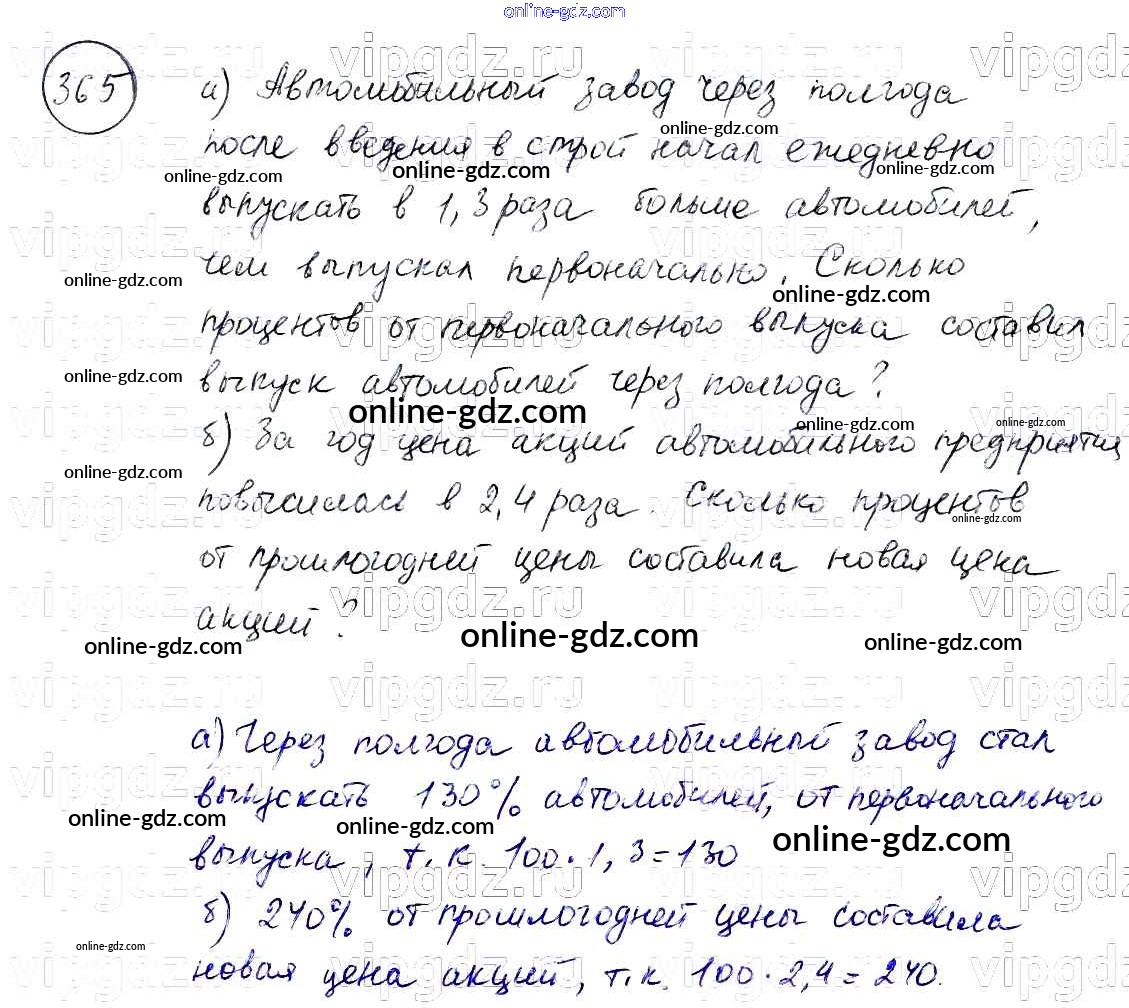 online-gdz.com
365
а) Автомобильный завод через полгода
после введения в строй начал ежедневно
выпускать в 1,3 раза больше автомобилей,
чем выпускал первоначально. Сколько
процентов от первоначального выпуска составил
выпуск автомобилей через полгода?
б) За год цена акций автомобильного предприятия
повысилась в 2,4 раза. Сколько процентов
от прошлогодней цены составила новая цена
акций?
а) Через полгода автомобильный завод стал
выпускать 130% автомобилей, от первоначального
выпуска, т.к. 100·1,3=130
б) 240% от прошлогодней цены составила
новая цена акций, т.к. 100·2,4=240.